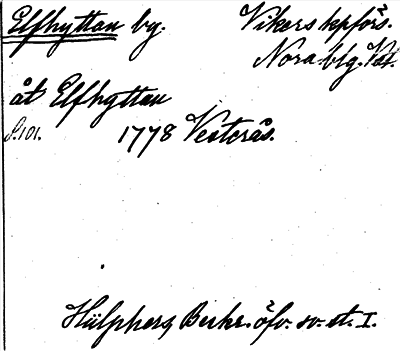 Elfhyttan by. Vikers kpförs.
Nora blg. Vstm.
åt Elfhyttan
S. 101. 1778 Vesterås.
Hülphers Beskr. öfv. sv. st. I.